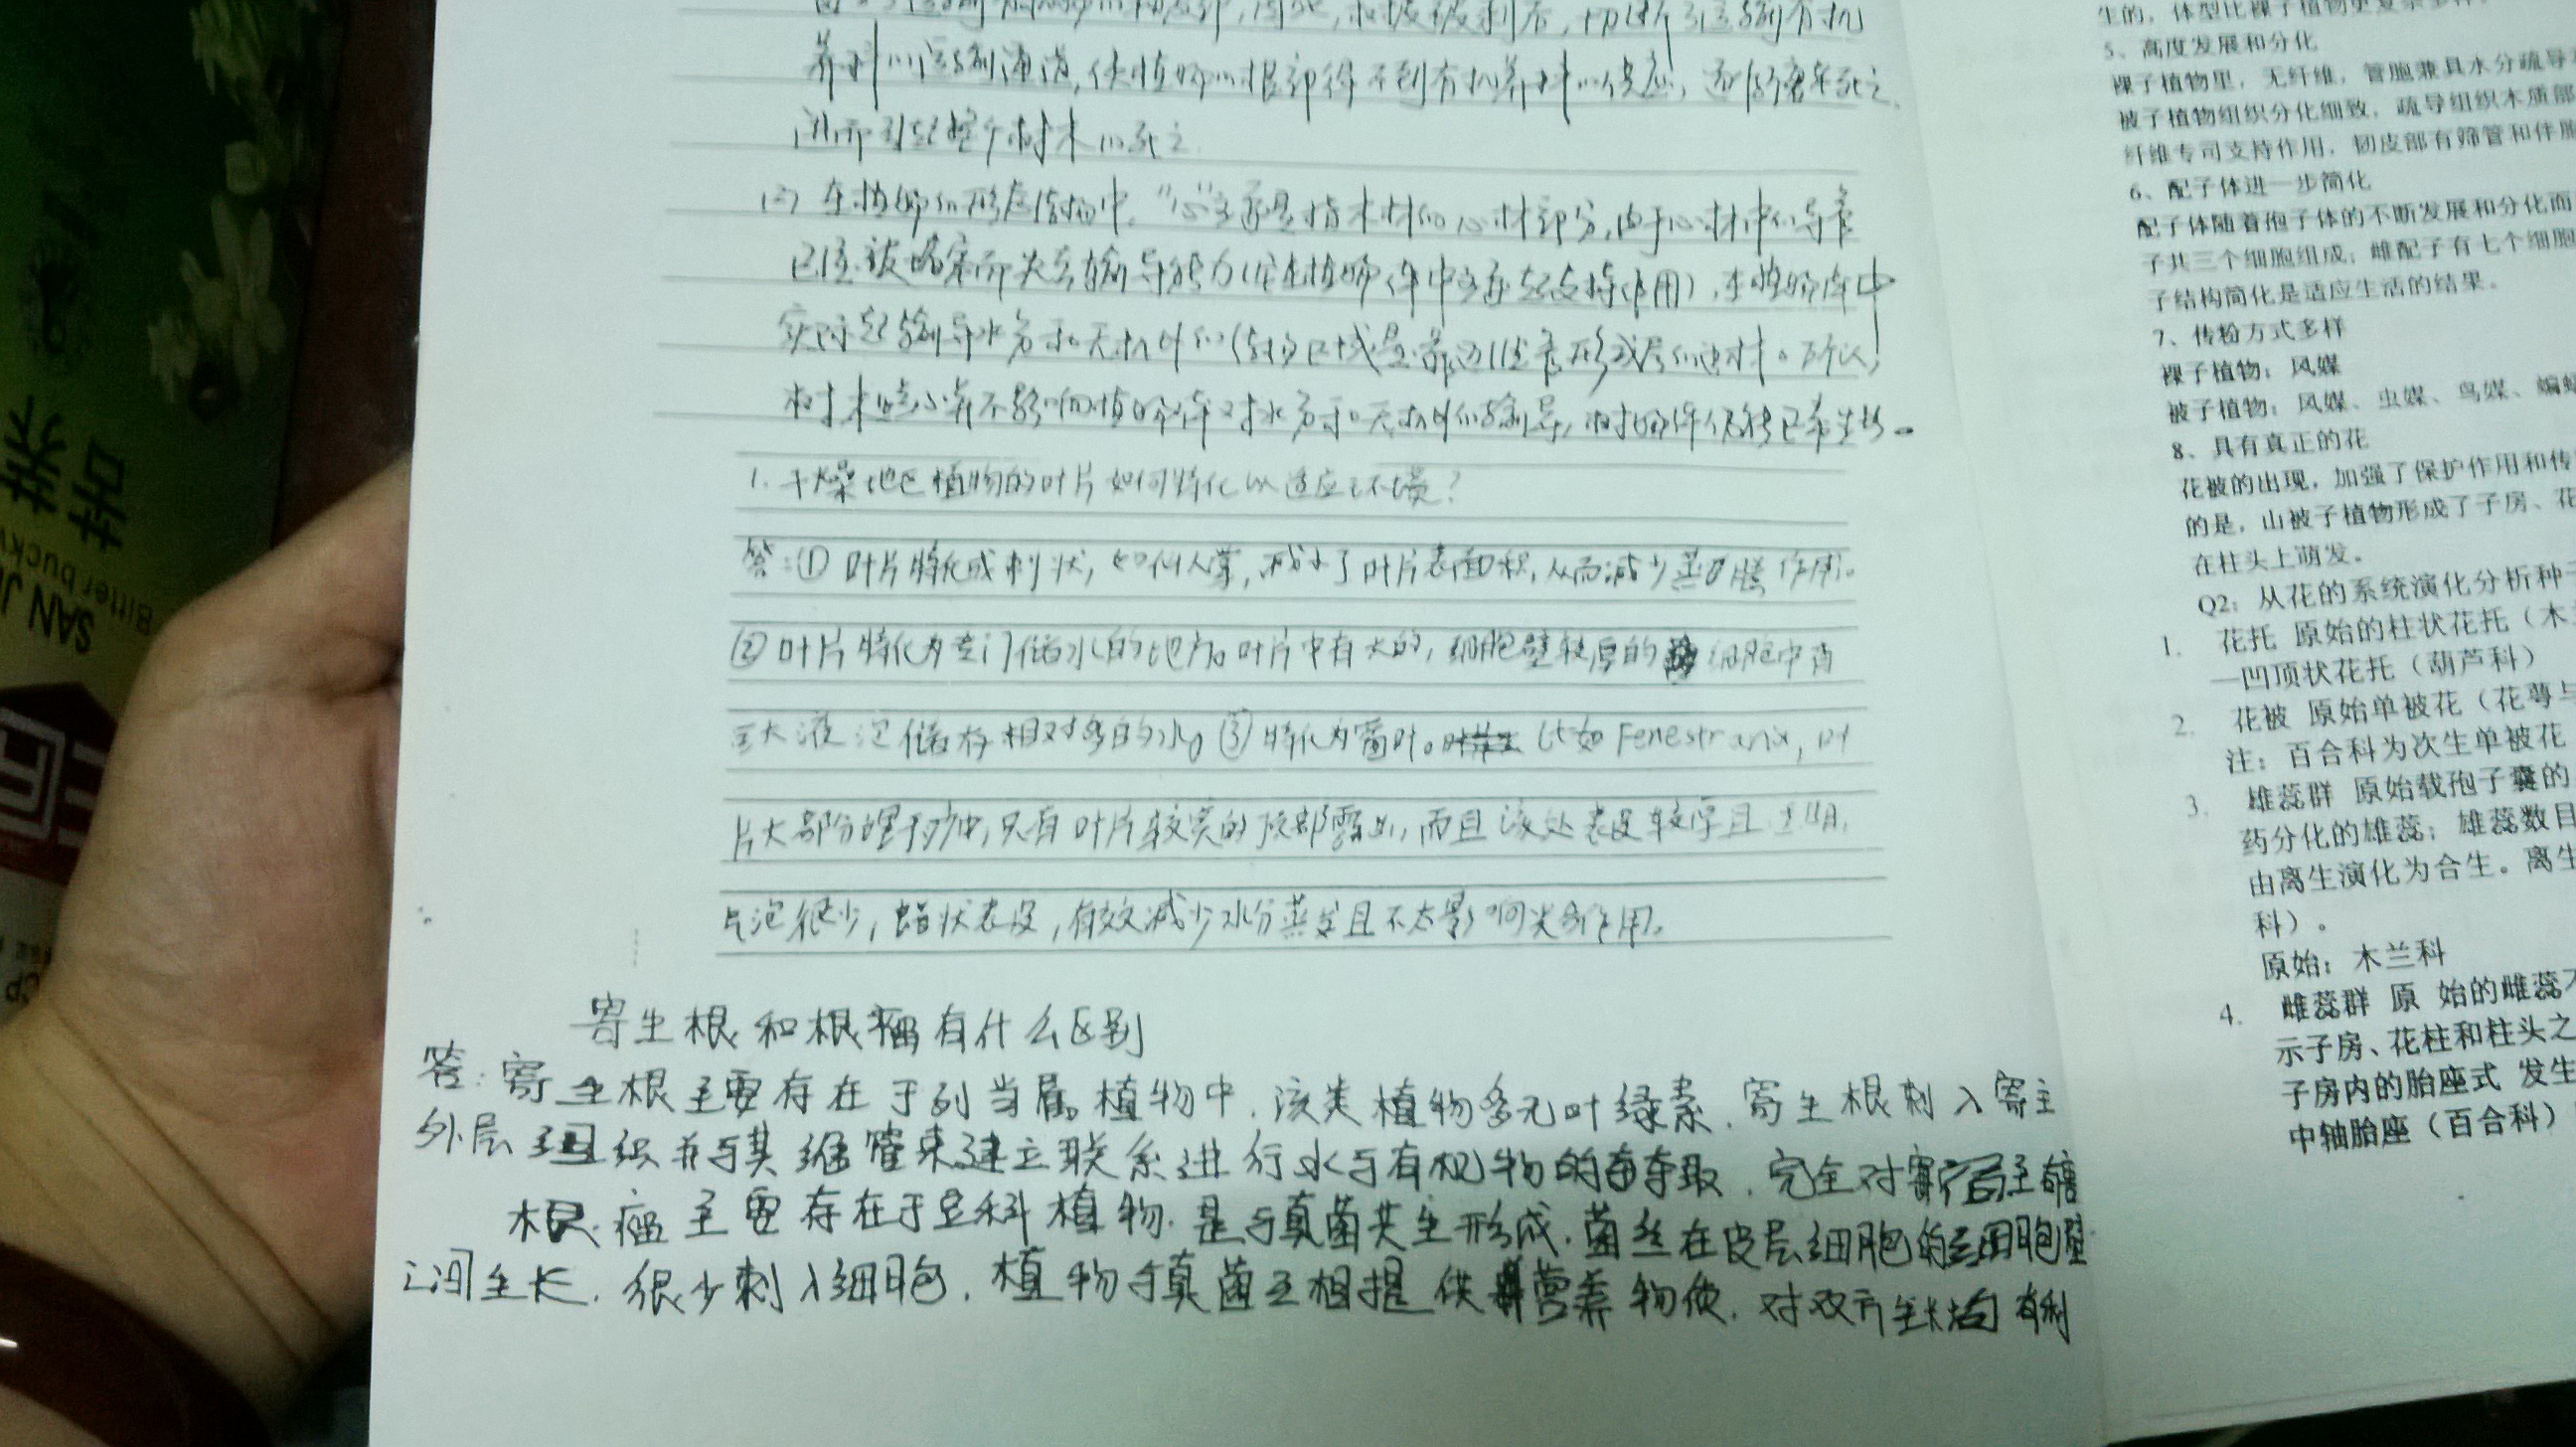 养料的运输通道,使植物的根部得不到有机养料的供应,逐渐衰老死亡
进而引起整个树木的死亡
(2) 在植物的形态结构中,“心”主要是指木材的心材部分,由于心材中的导管
已经被堵塞而失去输导能力(在植物体中主要起支持作用),在植物体中
实际起输导水分和无机盐的结构区域是靠近形成层的边材。所以,
树木空心并不影响植物体对水分和无机盐的输导,树的体仍能正常生长。
1. 干燥地区植物的叶片如何特化以适应环境?
答:① 叶片特化成刺状,如仙人掌,减小了叶片表面积,从而减少蒸腾作用。
② 叶片特化为专门储水的地方。叶片中有大的,细胞壁较厚的 细胞中有
大液泡储存相对多的水。③ 特化为窗叶。比如 Fenestraria, 叶
片大部分埋于沙中,只有叶片较宽的顶部露出,而且该处表皮较厚且透明,
气泡很少,蜡状表皮,有效减少水分蒸发且不太影响光合作用。
寄生根和根瘤有什么区别
答:寄生根主要存在于列当属植物中,该类植物多无叶绿素,寄生根刺入寄主
外层组织并与其维管束建立联系进行水与有机物的夺取,完全对寄主有害
根瘤主要存在于豆科植物,是与真菌共生形成,菌丝在皮层细胞的细胞壁
之间生长,很少刺入细胞,植物与真菌互相提供营养物质,对双方生长均有利
生的,体型比裸子植物更复杂多样。
5、高度发展和分化
裸子植物里,无纤维,管胞兼具水分疏导
被子植物组织分化细致,疏导组织木质部
纤维专司支持作用,韧皮部有筛管和伴胞
6、配子体进一步简化
配子体随着孢子体的不断发展和分化而
子共三个细胞组成;雌配子有七个细胞
子结构简化是适应生活的结果。
7、传粉方式多样
裸子植物:风媒
被子植物:风媒、虫媒、鸟媒、蝙蝠
8、具有真正的花
花被的出现,加强了保护作用和传
的是,山被子植物形成了子房、花
在柱头上萌发。
Q2:从花的系统演化分析种
1. 花托 原始的柱状花托(木
—凹顶状花托(葫芦科)
2. 花被 原始单被花(花萼与
注:百合科为次生单被花
3. 雄蕊群 原始载孢子囊的
药分化的雄蕊;雄蕊数目
由离生演化为合生。离生
科)。
原始:木兰科
4. 雌蕊群 原 始的雌蕊
示子房、花柱和柱头之
子房内的胎座式 发生
中轴胎座(百合科)
苦荞
Bitter buckw
SAN JI